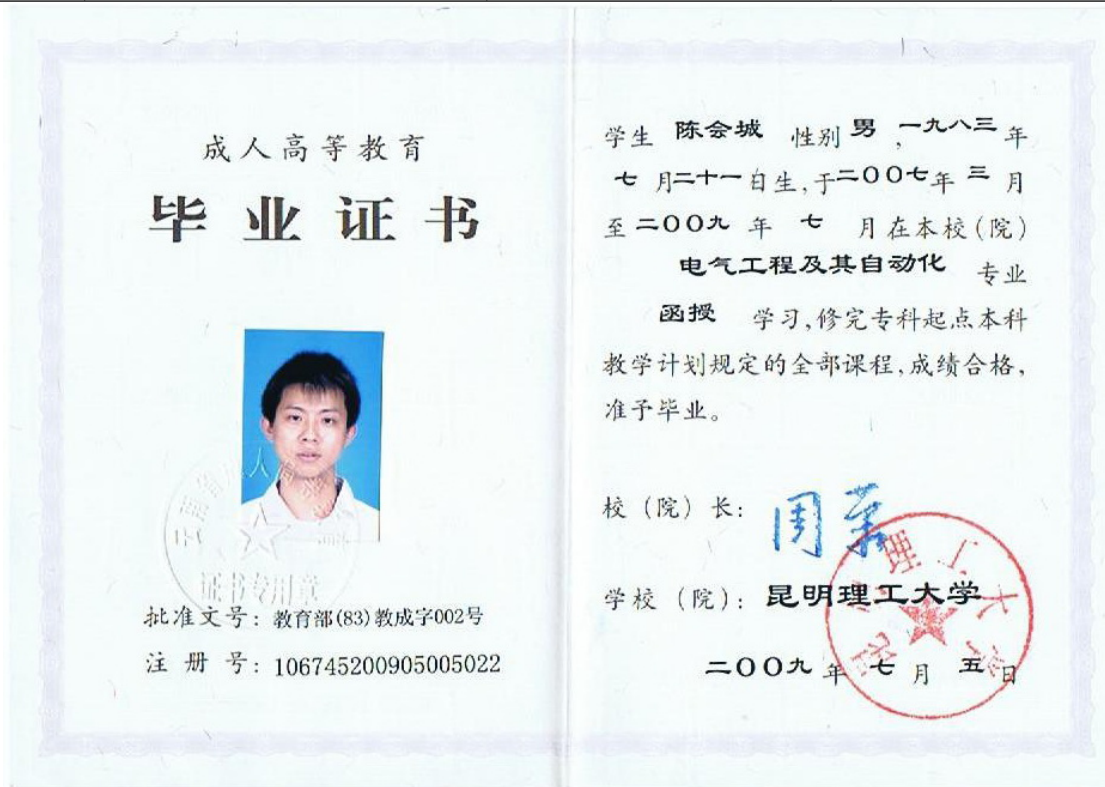 成人高等教育
毕业证书
云南省成人高等教育
证书专用章
批准文号：教育部(83)教成字002号
注 册 号：106745200905005022
学生 陈会城 性别 男，一九八三年
七月二十一日生，于二〇〇七年 三 月
至二〇〇九 年 七 月在本校(院)
电气工程及其自动化 专业
函授 学习，修完专科起点本科
教学计划规定的全部课程，成绩合格，
准予毕业。
校（院）长：周荣
学校（院）：昆明理工大学
昆明理工大学
二〇〇九 年 七 月 五 日